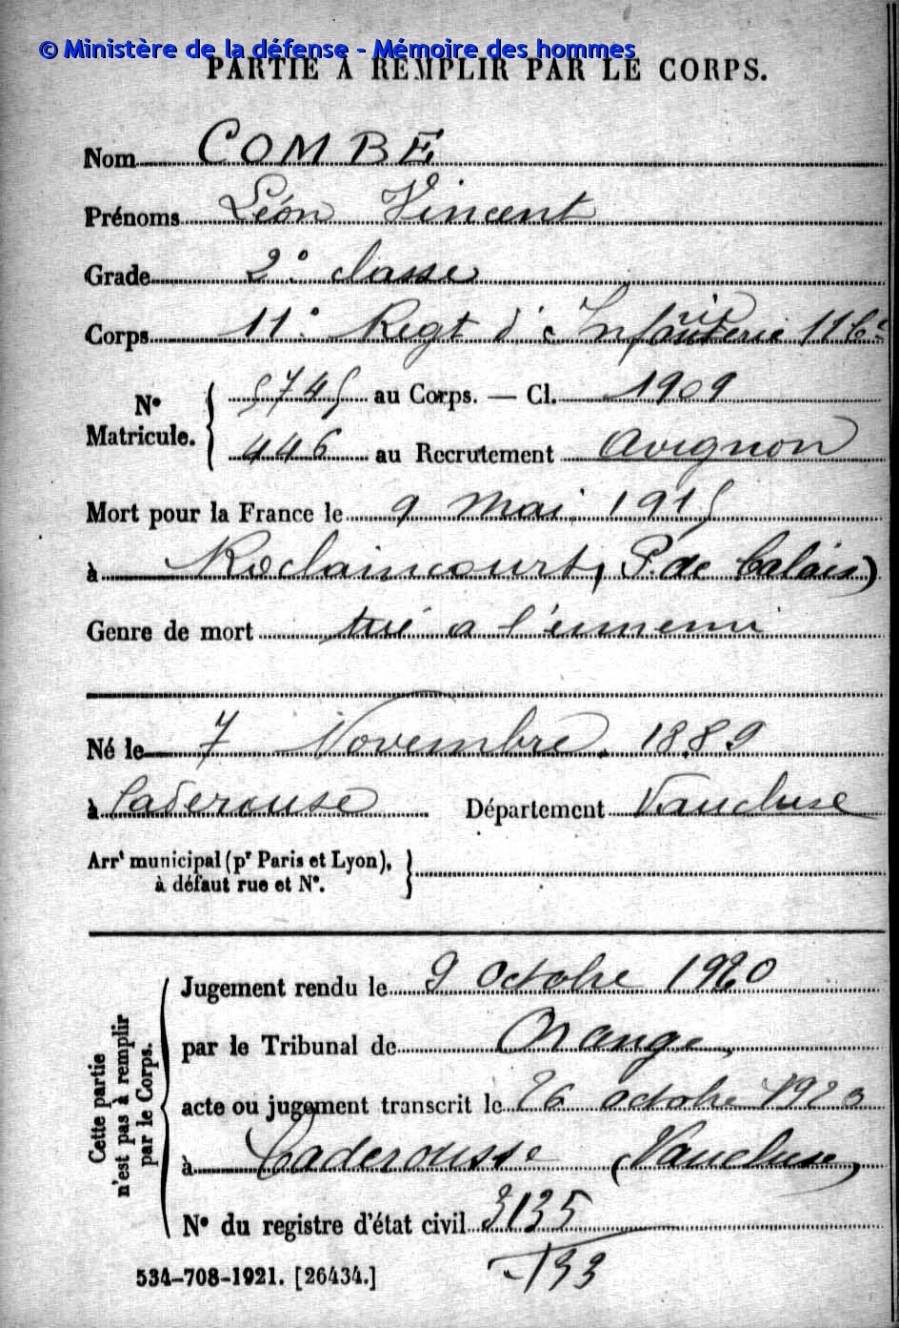 © Ministère de la défense - Mémoire des hommes
PARTIE À REMPLIR PAR LE CORPS.
Nom COMBE
Prénoms Léon Vincent
Grade 2e classe
Corps 11e Regt d'Infanterie 11 Cie
No Matricule. 5745 au Corps. — Cl. 1909
446 au Recrutement Avignon
Mort pour la France le 9 mai 1915
à Roclaincourt, P. de Calais)
Genre de mort tué a l'ennemi
Né le 7 Novembre 1889
à Caderousse Département Vaucluse
Arrt municipal (pr Paris et Lyon),
à défaut rue et No.
Cette partie
n'est pas à remplir
par le Corps.
Jugement rendu le 9 octobre 1920
par le Tribunal de Orange
acte ou jugement transcrit le 26 octobre
à Caderousse (Vaucluse)
No du registre d'état civil 3135
133
534-708-1921. [26434.]